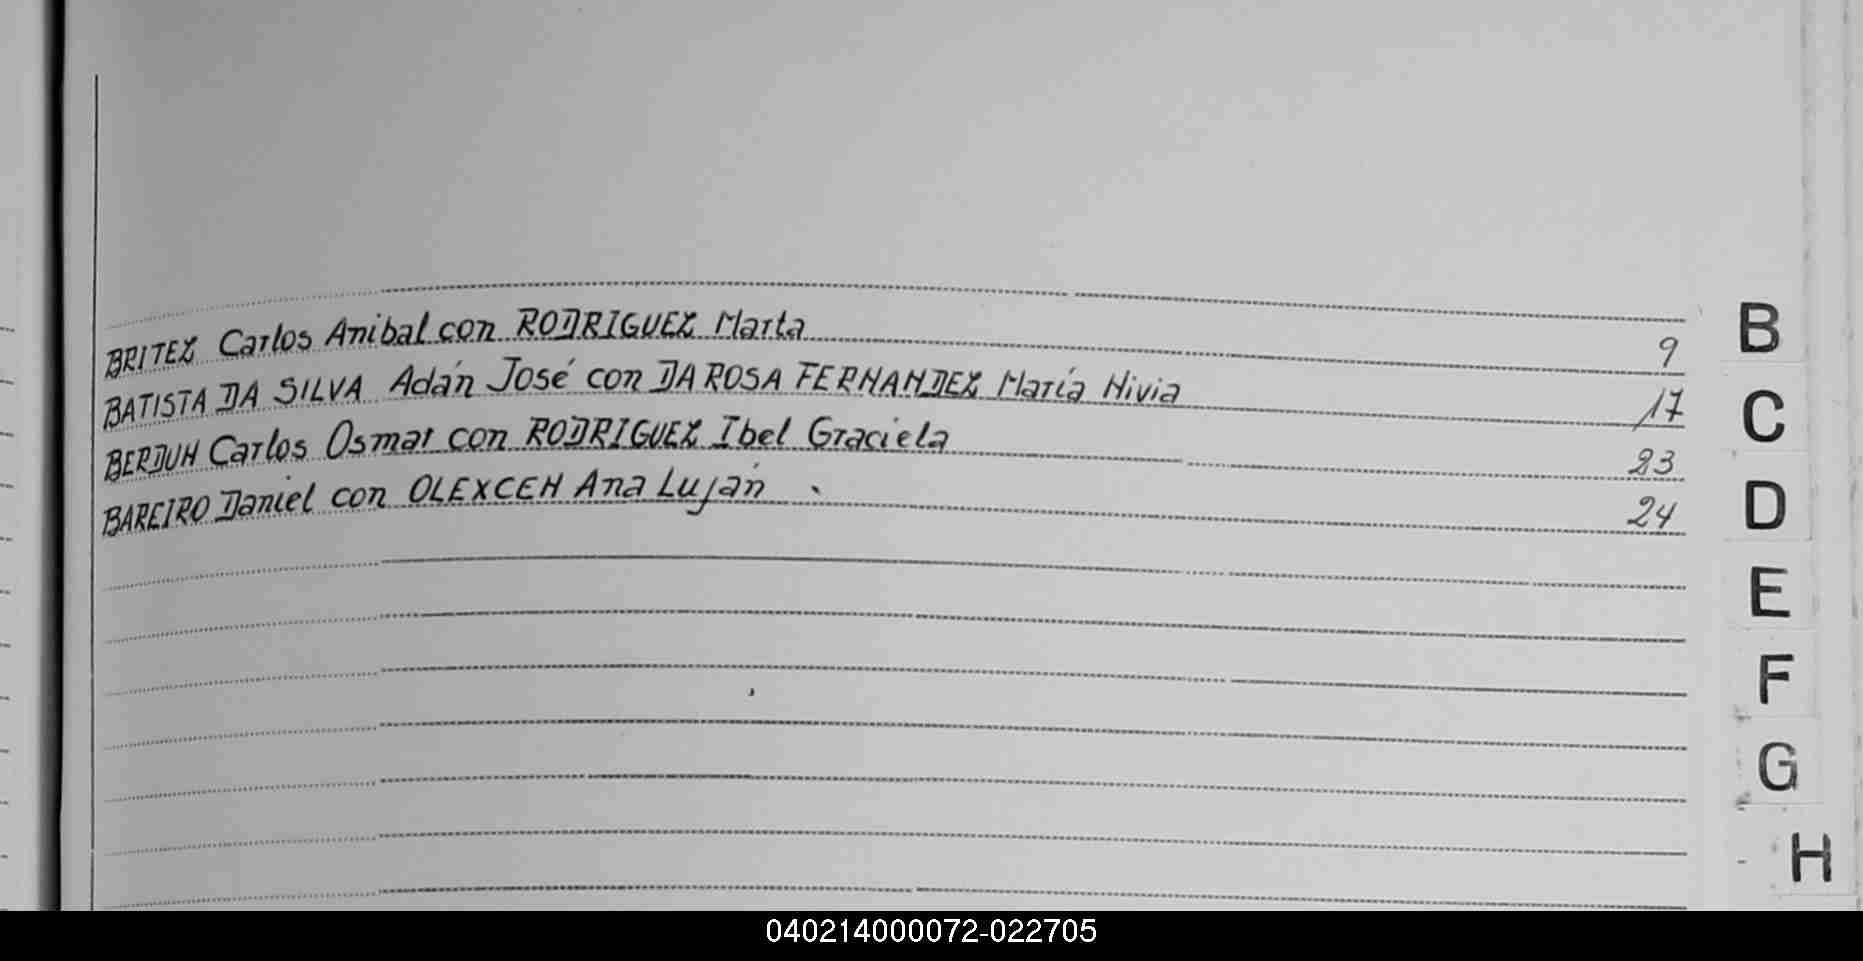 BRITEZ Carlos Anibal con RODRIGUEZ Marta 9
BATISTA DA SILVA Adán José con DA ROSA FERNANDEZ María Nivia 17
BERDUN Carlos Osmar con RODRIGUEZ Ibel Graciela 23
BAREIRO Daniel con OLEXCEN Ana Luján 24
B
C
D
E
F
G
H
040214000072-022705